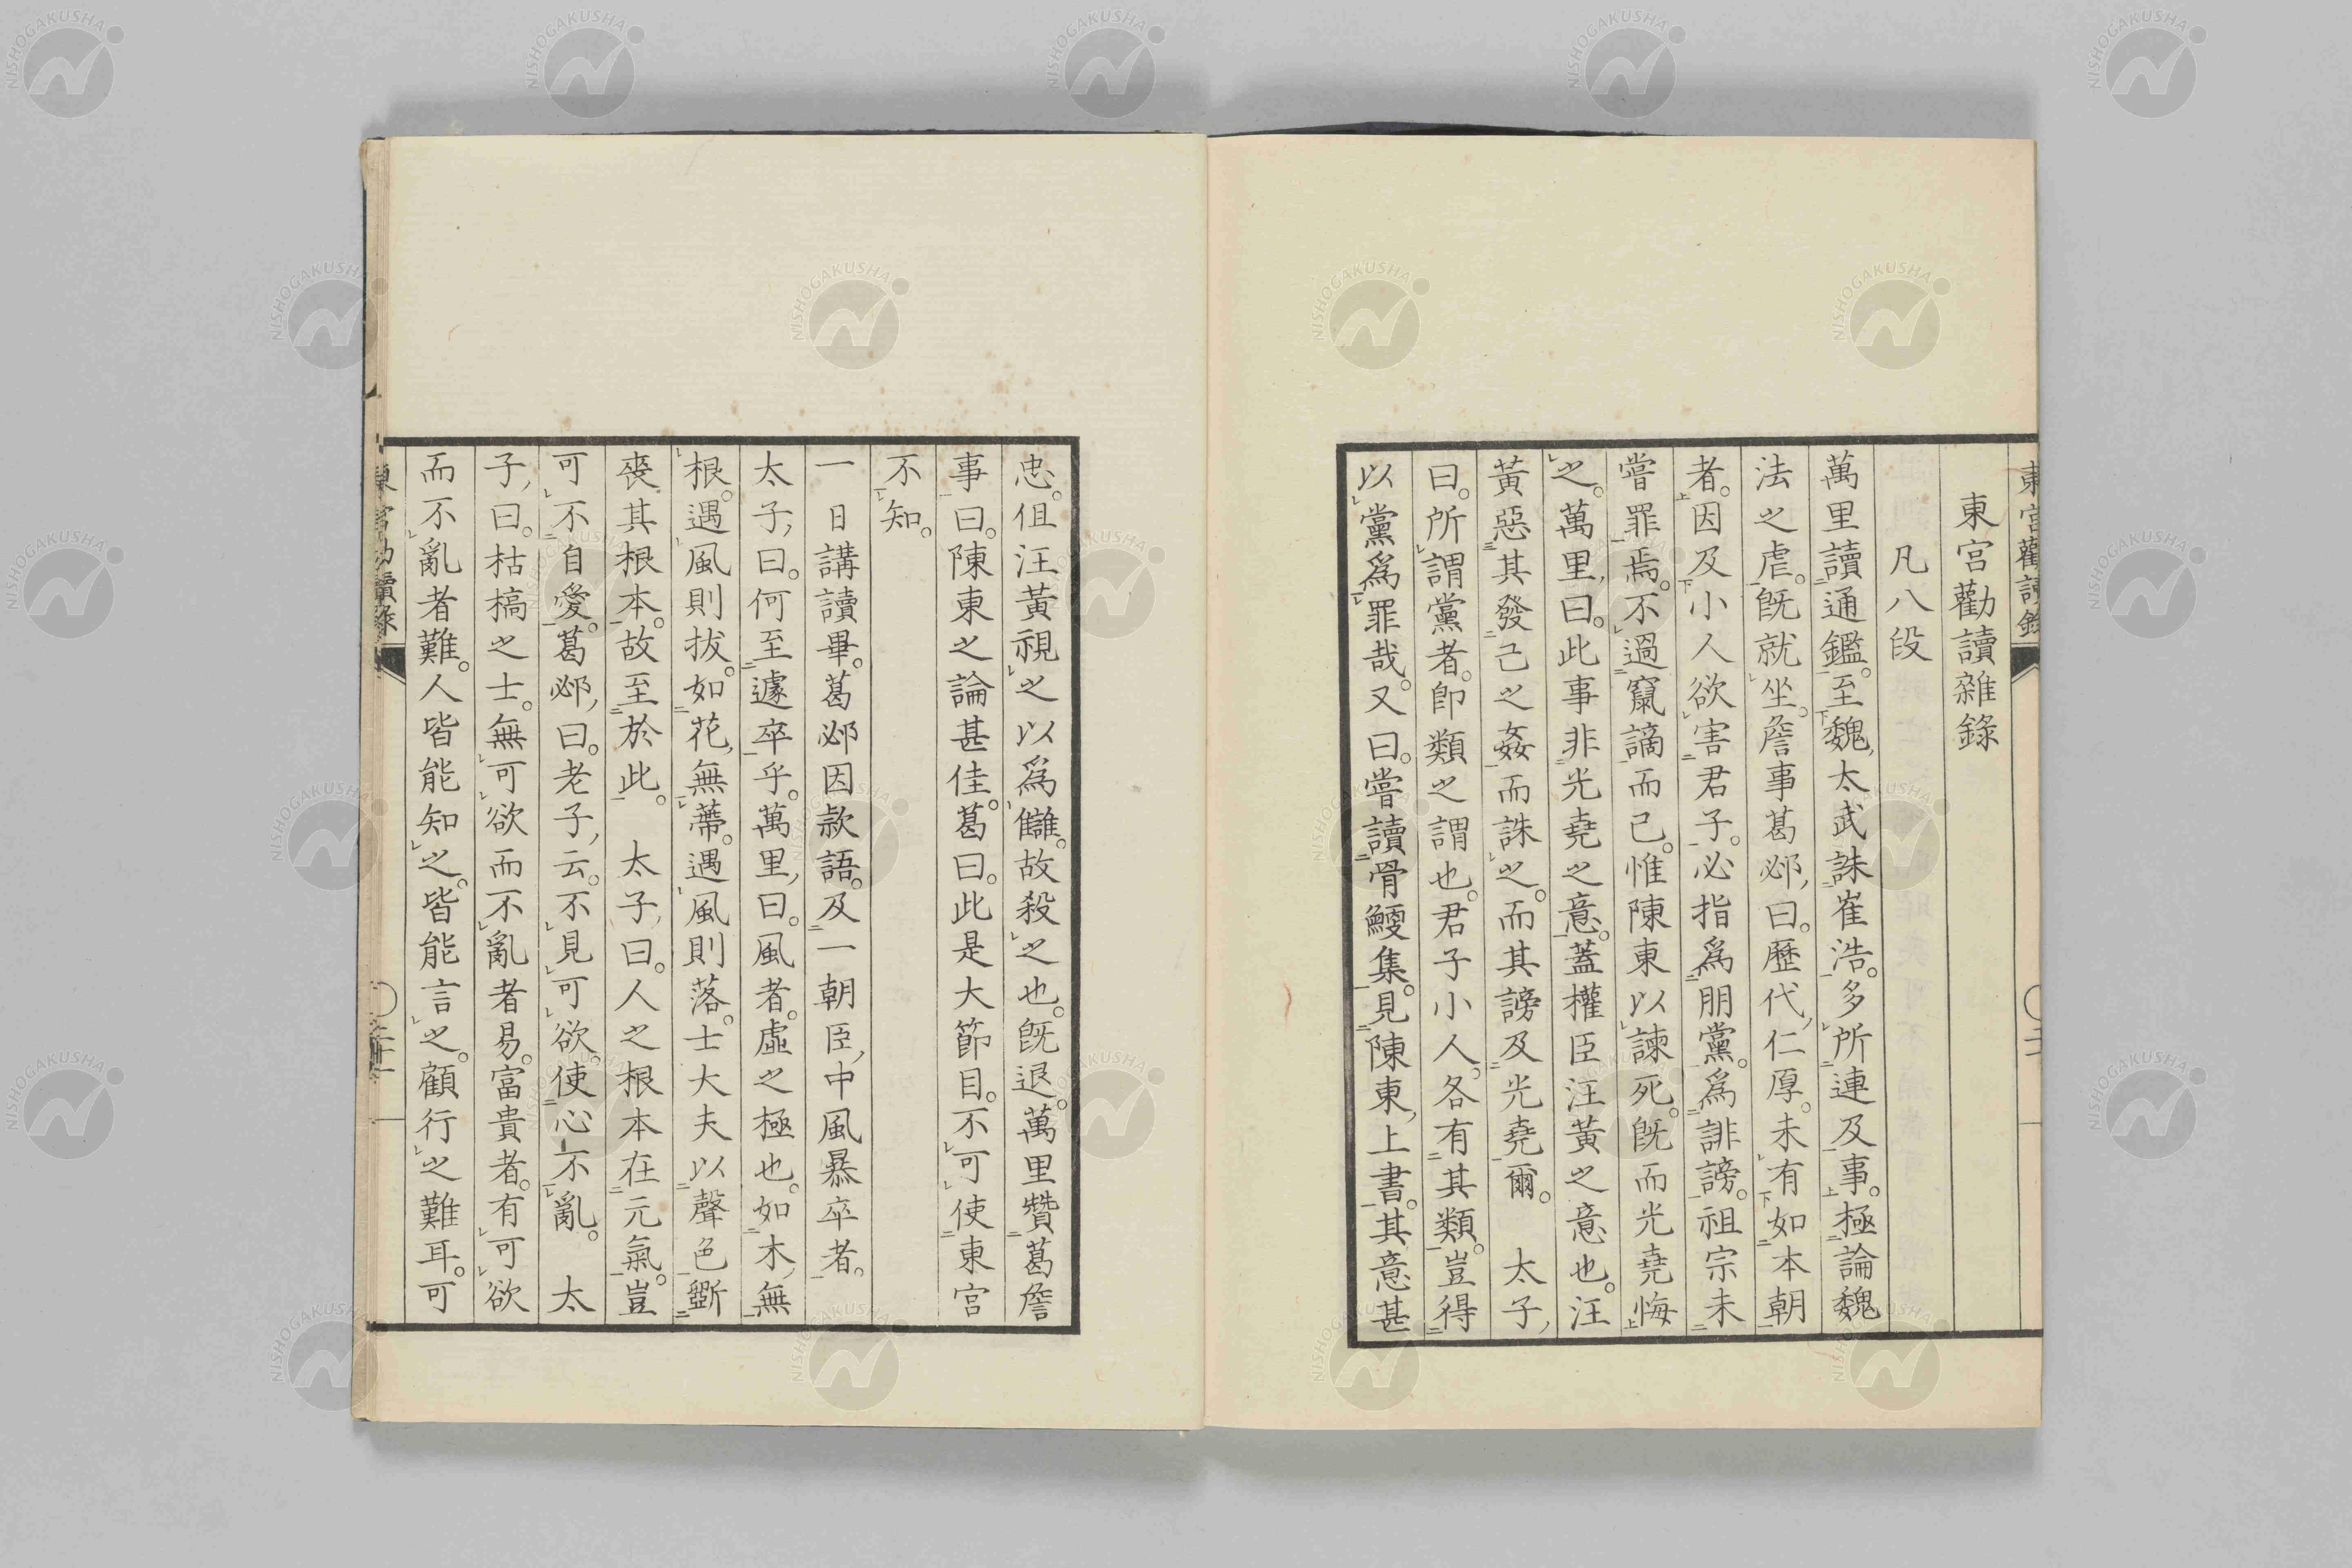 東宮勸讀錄
東宮勸讀雜錄
凡八段
萬里讀通鑑。至魏太武誅崔浩。多所連及事。極論魏
法之虐。旣就坐。詹事葛邲曰。歷代仁厚。未有如本朝
者。因及小人欲害君子。必指爲朋黨。爲誹謗。祖宗未
嘗罪焉。不過竄謫而已。惟陳東以諫死。旣而光堯悔
之。萬里曰。此事非光堯之意。蓋權臣汪黃之意也。汪
黃惡其發己之姦而誅之。而其謗及光堯爾。 太子
曰。所謂黨者。卽類之謂也。君子小人。各有其類。豈得
以黨爲罪哉。又曰。嘗讀骨鯁集。見陳東上書。其意甚
忠。伹汪黃視之以爲讎。故殺之也。旣退。萬里贊葛詹
事曰。陳東之論甚佳。葛曰。此是大節目。不可使東宮
不知。
一日講讀畢。葛邲因款語。及一朝臣中風暴卒者。
太子曰。何至遽卒乎。萬里曰。風者。虛之極也。如木無
根。遇風則拔。如花無蔕。遇風則落。士大夫以聲色斵
喪其根本。故至於此。 太子曰。人之根本在元氣。豈
可不自愛。葛邲曰。老子云。不見可欲。使心不亂。 太
子曰。枯槁之士。無可欲而不亂者易。富貴者。有可欲
而不亂者難。人皆能知之。皆能言之。顧行之難耳。可